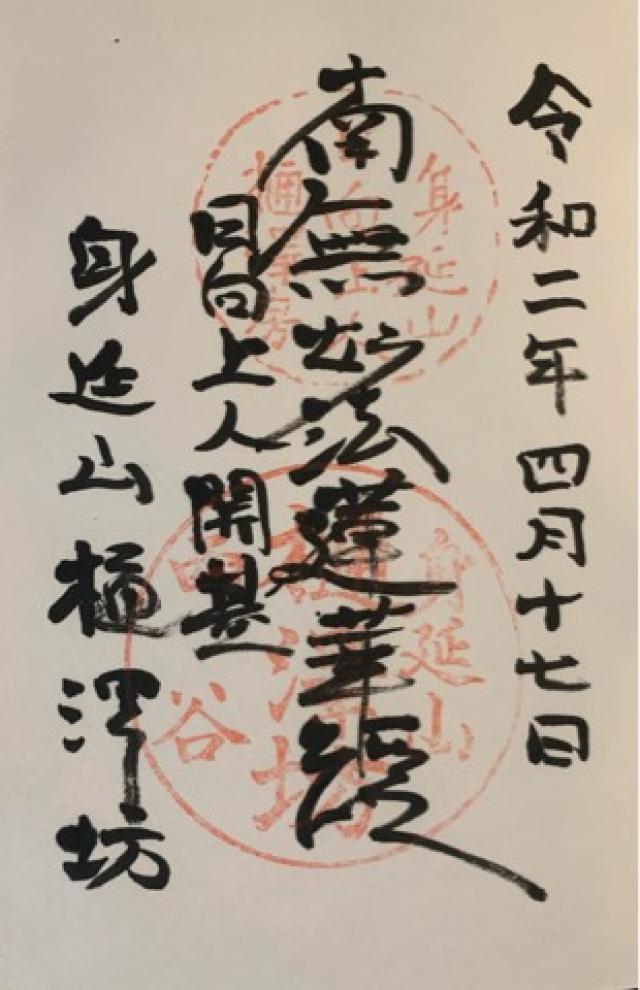 令和二年四月十七日
南無妙法蓮華経
日向上人開基
身延山樋澤坊
身延山
身延山
樋澤坊
谷